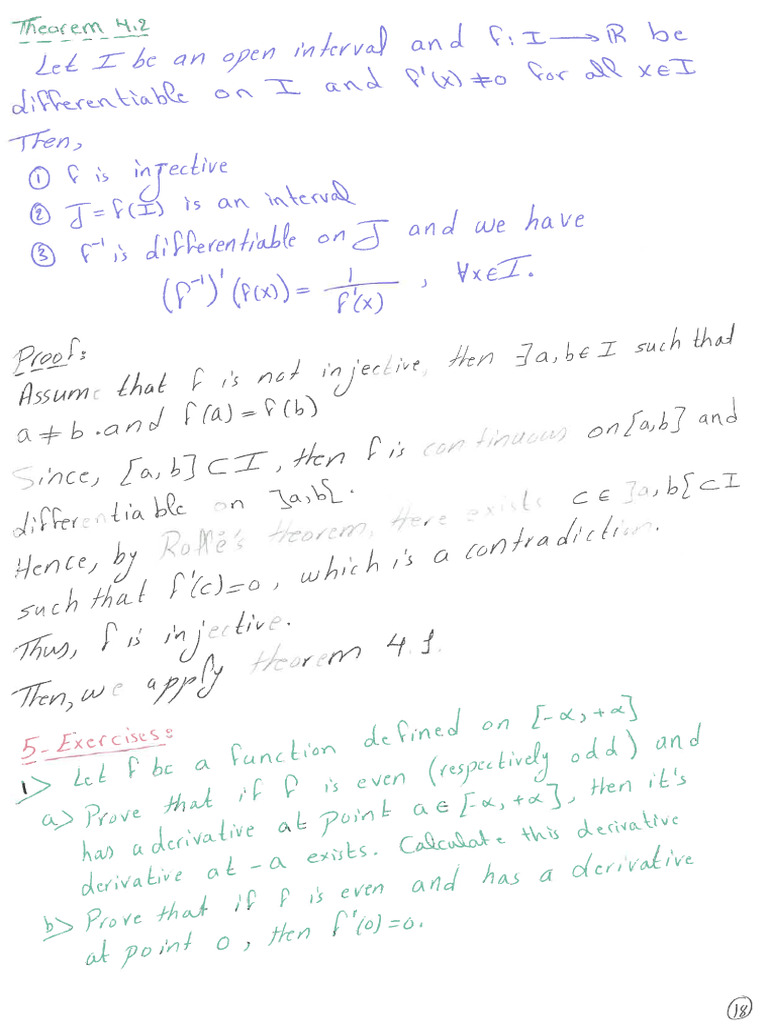 Theorem 4.2
Let I be an open interval and f: I → ℝ be
differentiable on I and f'(x) ≠ 0 for all x ∈ I
Then,
① f is injective
② J = f(I) is an interval
③ f⁻¹ is differentiable on J and we have
(f⁻¹)'(f(x)) = 1/f'(x) , ∀x ∈ I.
Proof:
Assume that f is not injective, then ∃a, b ∈ I such that
a ≠ b. and f(a) = f(b)
Since, [a, b] ⊂ I, then f is continuous on [a, b] and
differentiable on ]a, b[.
Hence, by Rolle's theorem, there exists c ∈ ]a, b[ ⊂ I
such that f'(c) = 0, which is a contradiction.
Thus, f is injective.
Then, we apply theorem 4.1.
5-Exercises:
1> Let f be a function defined on [-α, +α]
a> Prove that if f is even (respectively odd) and
has a derivative at point a ∈ [-α, +α], then it's
derivative at -a exists. Calculate this derivative
b> Prove that if f is even and has a derivative
at point 0, then f'(0) = 0.
18